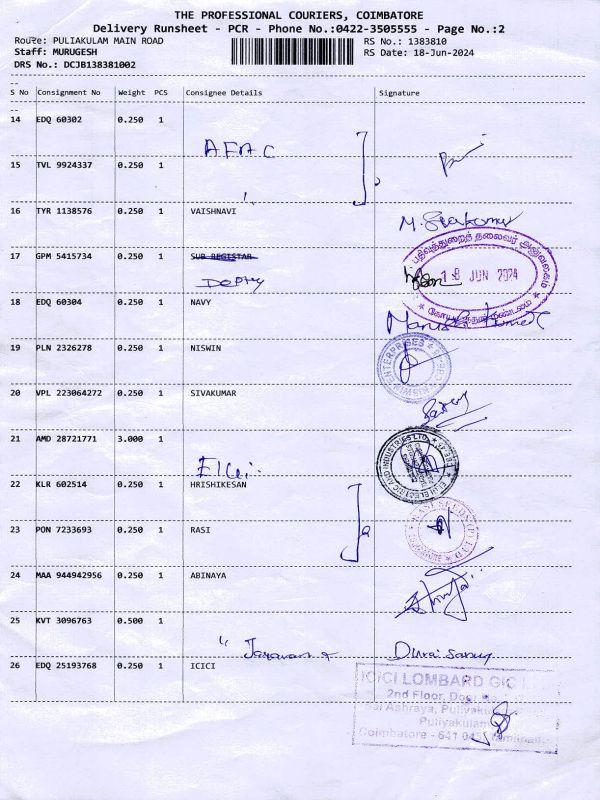 THE PROFESSIONAL COURIERS, COIMBATORE
Delivery Runsheet - PCR - Phone No.:0422-3505555 - Page No.:2
Route: PULIAKULAM MAIN ROAD
RS No.: 1383810
Staff: MURUGESH
RS Date: 18-Jun-2024
DRS No.: DCJB138381002
S No Consignment No Weight PCS Consignee Details Signature
14 EDQ 60302 0.250 1
AFAC
15 TVL 9924337 0.250 1
16 TYR 1138576 0.250 1 VAISHNAVI
M. Sivakumar
17 GPM 5415734 0.250 1 SUB REGISTAR
பதிவுத்துறைத் தலைவர் அலுவலகம்
18 JUN 2024
Depty
18 EDQ 60304 0.250 1 NAVY
19 PLN 2326278 0.250 1 NISWIN
ENTERPRISES
20 VPL 223064272 0.250 1 SIVAKUMAR
21 AMD 28721771 3.000 1
ELECTRIC AND INDUSTRIES LTD.
Elgi
22 KLR 602514 0.250 1 HRISHIKESAN
23 PON 7233693 0.250 1 RASI
24 MAA 944942956 0.250 1 ABINAYA
25 KVT 3096763 0.500 1
26 EDQ 25193768 0.250 1 ICICI
ICICI LOMBARD GIC
2nd Floor, Door
Sai Ashraya, Puliyakulam
Puliyakulam
Coimbatore - 641 045